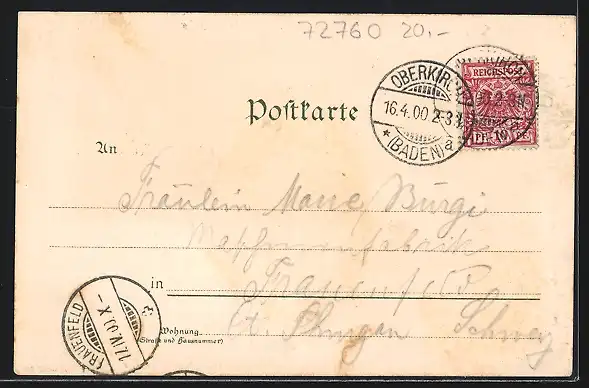 72760 20.-
Postkarte
OBERKIRCH
16.4.00 2-3N
* (BADEN) a
REICHSPOST
PF. 10 PF.
An
Fräulein Marie Bürgi
Maschinenfabrik
in Frauenfeld
Wohnung
(Straße und Hausnummer)
Ct. Thurgau Schweiz
FRAUENFELD
17.IV.00.X-